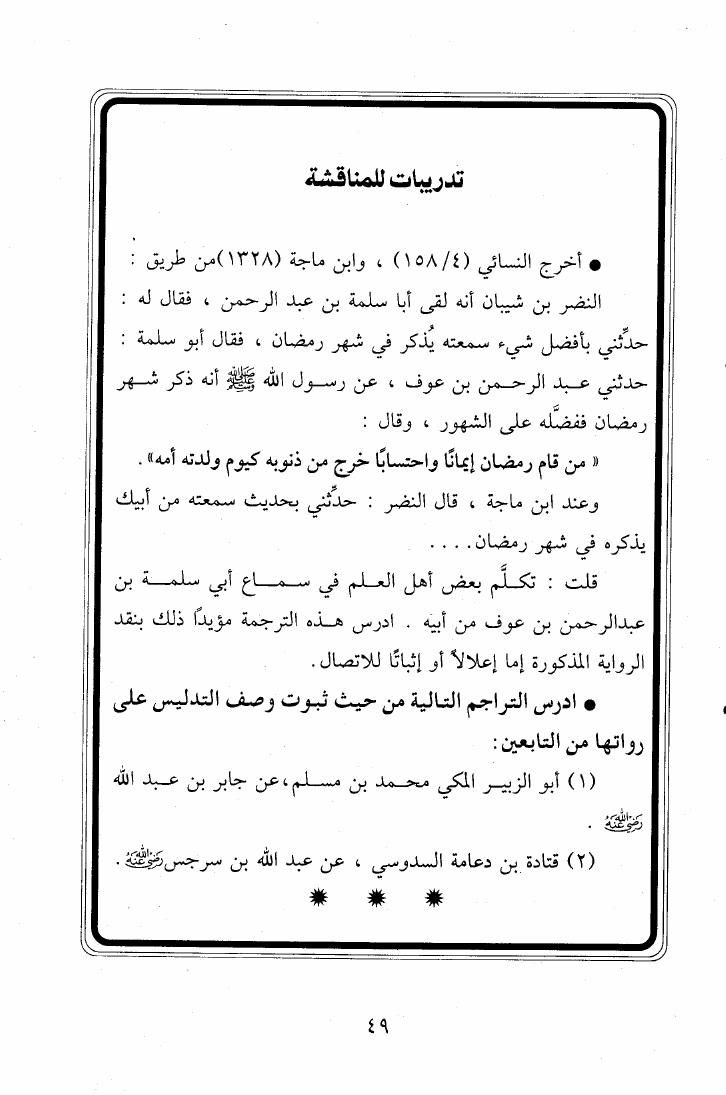 تدريبات للمناقشة
● أخرج النسائي (٤/١٥٨) ، وابن ماجة (١٣٢٨)من طريق :
النضر بن شيبان أنه لقى أبا سلمة بن عبد الرحمن ، فقال له :
حدِّثني بأفضل شيء سمعته يُذكر في شهر رمضان ، فقال أبو سلمة :
حدثني عبد الرحمن بن عوف ، عن رسول الله ﷺ أنه ذكر شهر
رمضان ففضَّله على الشهور ، وقال :
« من قام رمضان إيمانًا واحتسابًا خرج من ذنوبه كيوم ولدته أمه» .
وعند ابن ماجة ، قال النضر : حدِّثني بحديث سمعته من أبيك
يذكره في شهر رمضان. . . .
قلت : تكلَّم بعض أهل العلم في سماع أبي سلمة بن
عبدالرحمن بن عوف من أبيه . ادرس هذه الترجمة مؤيدًا ذلك بنقد
الرواية المذكورة إما إعلالاً أو إثباتًا للاتصال.
● ادرس التراجم التالية من حيث ثبوت وصف التدليس على
رواتها من التابعين:
(١) أبو الزبير المكي محمد بن مسلم،عن جابر بن عبد الله
رضي الله عنه .
(٢) قتادة بن دعامة السدوسي ، عن عبد الله بن سرجس رضي الله عنه .
٤٩